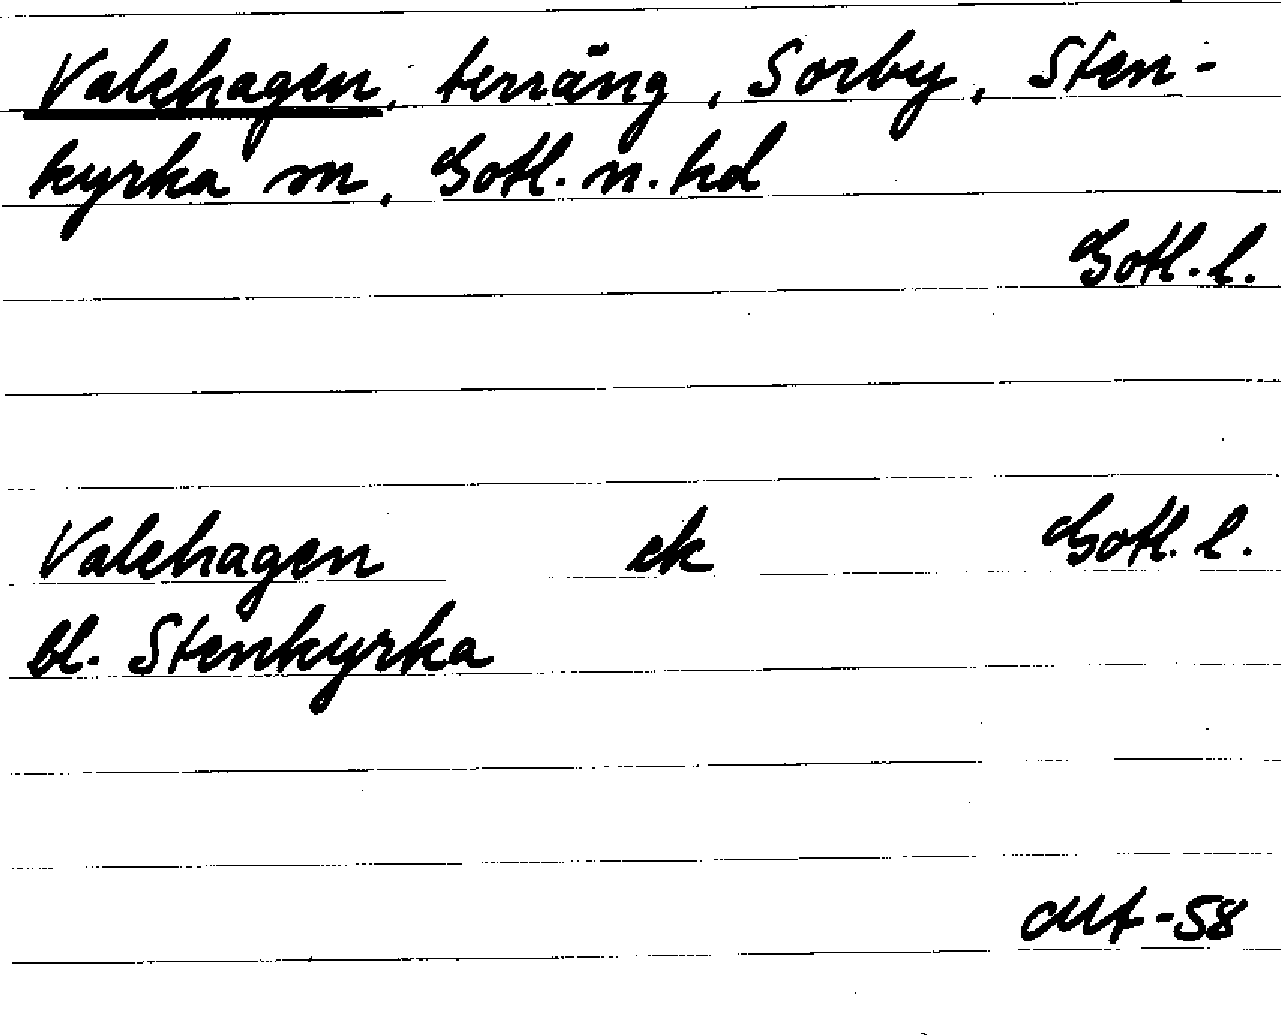 Valehagen, terräng, Sorby, Sten-
kyrka sn, Gotl. n. hd
Gotl. l.
Valehagen ek Gotl. l.
bl. Stenkyrka
-58